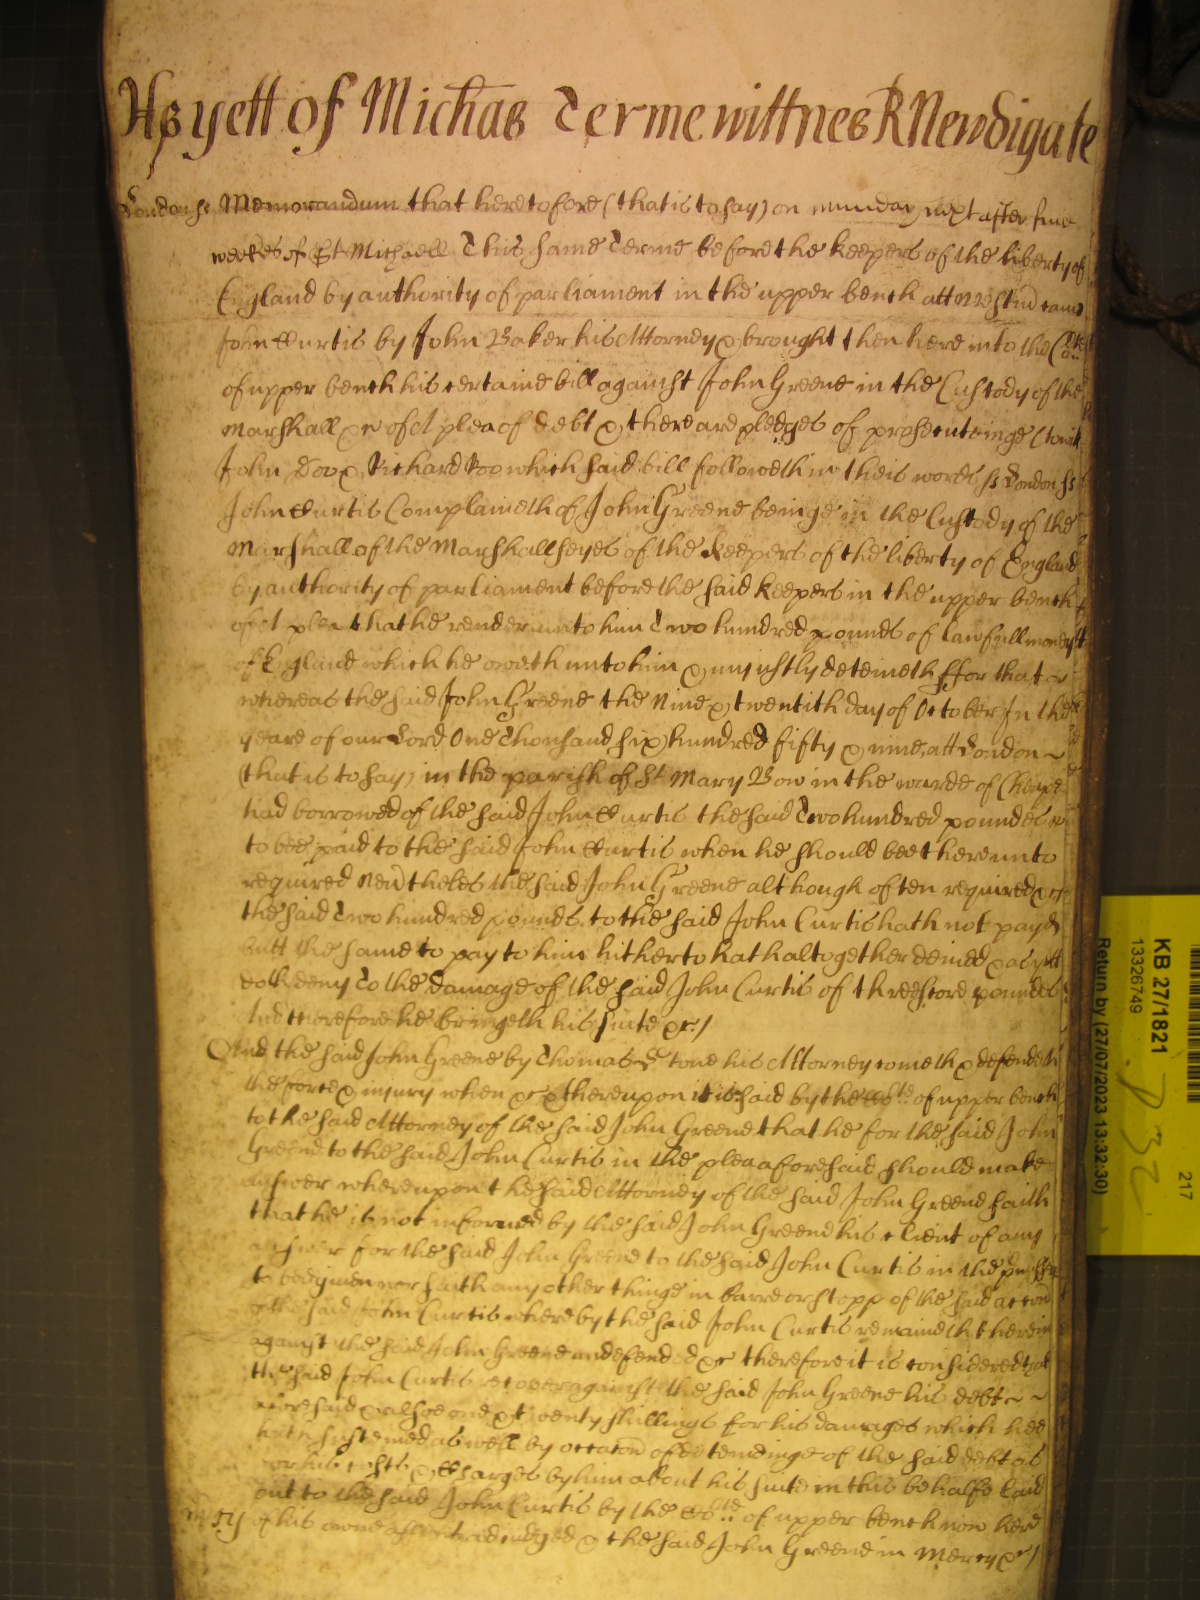 As yett of Michas Terme wittnes R Newdigate
London ss Memorandum that heretofore (that is to say) on munday next after five
weekes of St Michaell This same Terme before the keepers of the liberty of
England by authority of parliament in the upper bench att Westm came
John Curtis by John Baker his Attorney & brought then here into the Co:te
of upper bench his certaine bill against John Greene in the Custody of the
Marshall &c of A plea of debt & there are pledges of prosecuteinge (to witt
John Doo & Richard Roo which said bill followeth in theis words ss London ss
John Curtis Complaineth of John Greene beinge in the Custody of the
Marshall of the Marshallseyes of the Keepers of the liberty of England
by authority of parliament before the said keepers in the upper bench
of A plea that he render unto him Two hundred pounds of lawfull money
of England which he oweth unto him & unjustly deteineth ffor that
whereas the said John Greene the Nine & twentith day of October In the
yeare of our Lord One Thousand six hundred fifty & nine att London ~
(that is to say) in the parish of St Mary Bow in the warde of Cheape
had borrowed of the said John Curtis the said Two hundred poundes
to bee paid to the said John Curtis when he should bee thereunto
required Nev)theles the said John Greene although often required &c
the said Two hundred pounds to the said John Curtis hath not payd
butt the same to pay to him hitherto hath altogether denied & as yett
doth deny To the damage of the said John Curtis of threescore poundes
And therefore he bringeth his suite &c /
And the said John Greene by Thomas tone his Attorney cometh & defendeth
the force & injury when &c & thereupon it is said by the Co:te of upper bench
to the said Attorney of the said John Greene that he for the said John
Greene to the said John Curtis in the plea aforesaid should make
answer whereupon the said Attorney of the said John Greene saith
that he is not informed by the said John Greene his client of any
answer for the said John Greene to the said John Curtis in the
to bee given nor saith any other thinge in barre or stopp of the said accon
of the said John Curtis whereby the said John Curtis remaineth therein
against the said John Greene undefended &c therefore it is considered that
the said John Curtis recover against the said John Greene his debt ~ ~
aforesaid & alsoe one & twenty shillings for his damages which hee
hath susteined as well by occacon of deteineinge of the said debt as
for his costs & Charges by him about his suite in this behalfe laid
out to the said John Curtis by the Co:te of upper bench now here
Mercy of his owne assent adiudged & the said John Greene in Mercy &c /
KB 27/1821
13326749
Return by (27/07/2023 13:32:30)
217